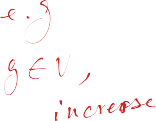 e.g
g ∈ V,
increase